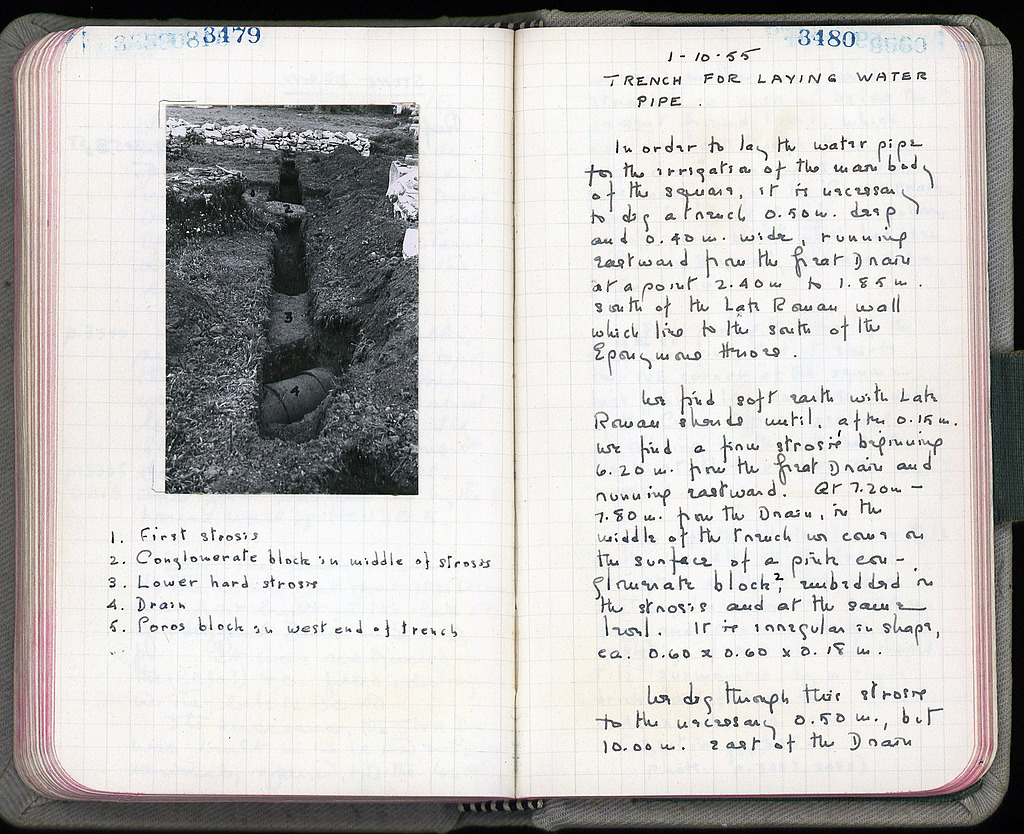 3479
1. First strosis
2. Conglomerate block in middle of strosis
3. Lower hard strosis
4. Drain
5. Poros block in west end of trench
2
3
4
3480
1-10-55
TRENCH FOR LAYING WATER
PIPE.
In order to lay the water pipe
for the irrigation of the main body
of the square, it is necessary
to dig a trench 0.50 m. deep
and 0.40 m. wide, running
eastward from the great Drain
at a point 2.40 m to 1.85 m.
south of the Late Roman wall
which lies to the south of the
Eponymous Heroes.
We find soft earth with Late
Roman sherds until, after 0.15 m.
we find a firm strosis beginning
6.20 m. from the great Drain and
running eastward. At 7.20 m -
7.80 m. from the Drain, in the
middle of the trench we come on
the surface of a pink con-
glomerate block², embedded in
the strosis and at the same
level. It is irregular in shape,
ca. 0.60 x 0.60 x 0.18 m.
We dig through this strosis
to the necessary 0.50 m., but
10.00 m. east of the Drain